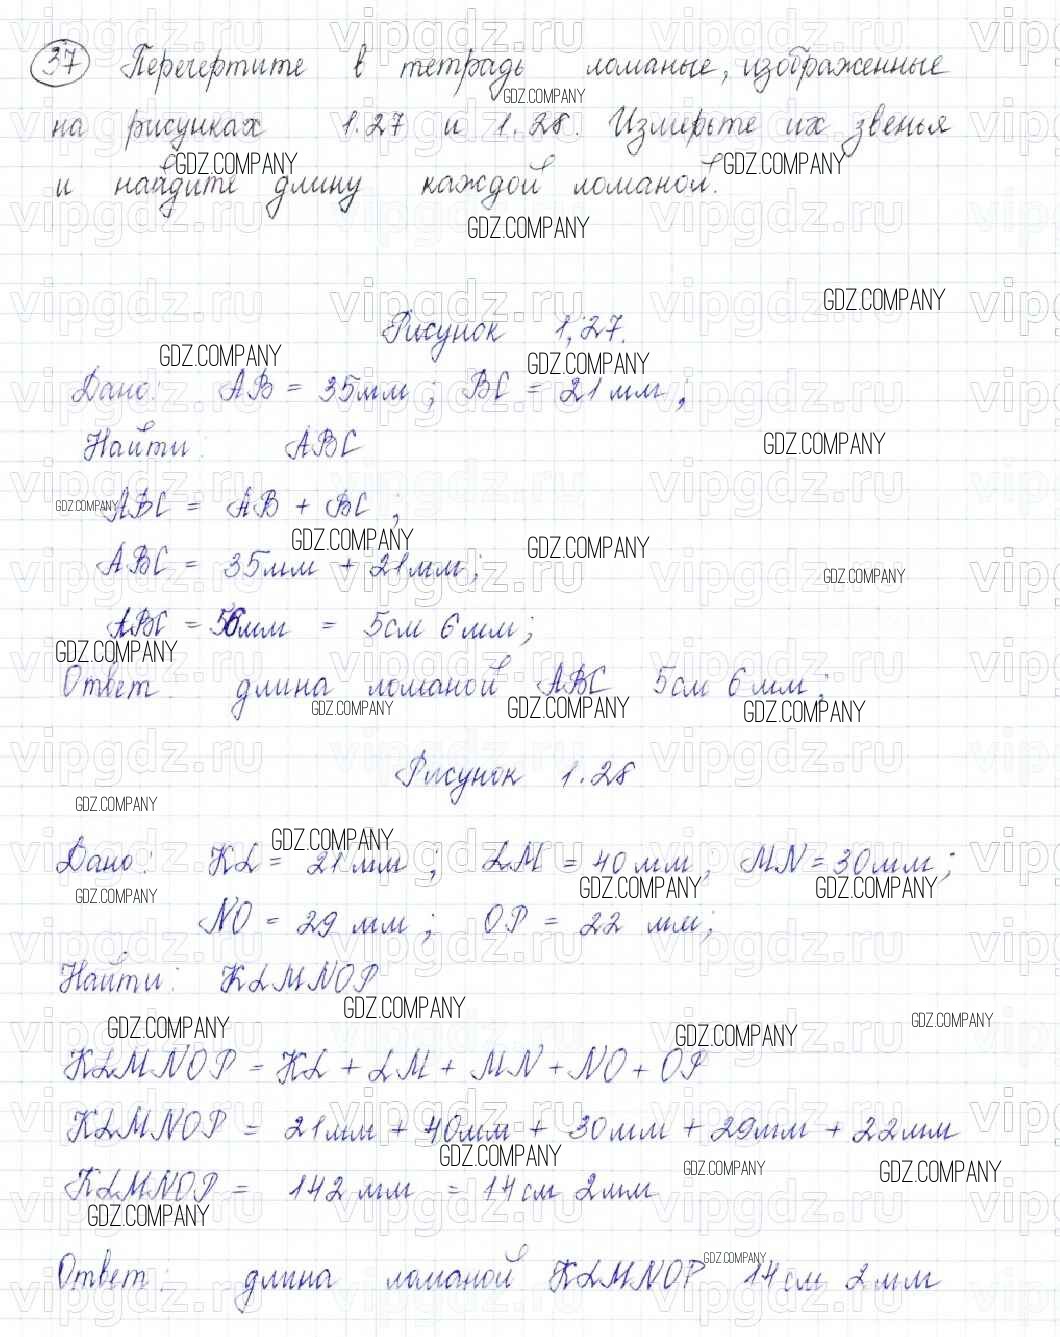 37 Перечертите в тетрадь ломаные, изображенные
на рисунках 1.27 и 1.28. Измерьте их звенья
и найдите длину каждой ломаной.
Рисунок 1.27.
Дано: AB = 35мм ; BC = 21мм ;
Найти: ABC
ABC = AB + BC ;
ABC = 35мм + 21мм ;
ABC = 56мм = 5см 6мм ;
Ответ: длина ломаной ABC 5см 6мм ;
Рисунок 1.28
Дано: KL = 21мм ; LM = 40мм ; MN = 30мм ;
NO = 29 мм ; OP = 22 мм ;
Найти: KLMNOP
KLMNOP = KL + LM + MN + NO + OP
KLMNOP = 21мм + 40мм + 30мм + 29мм + 22мм
KLMNOP = 142мм = 14см 2мм
Ответ: длина ломаной KLMNOP 14см 2мм
vipgdz.ru
GDZ.COMPANY